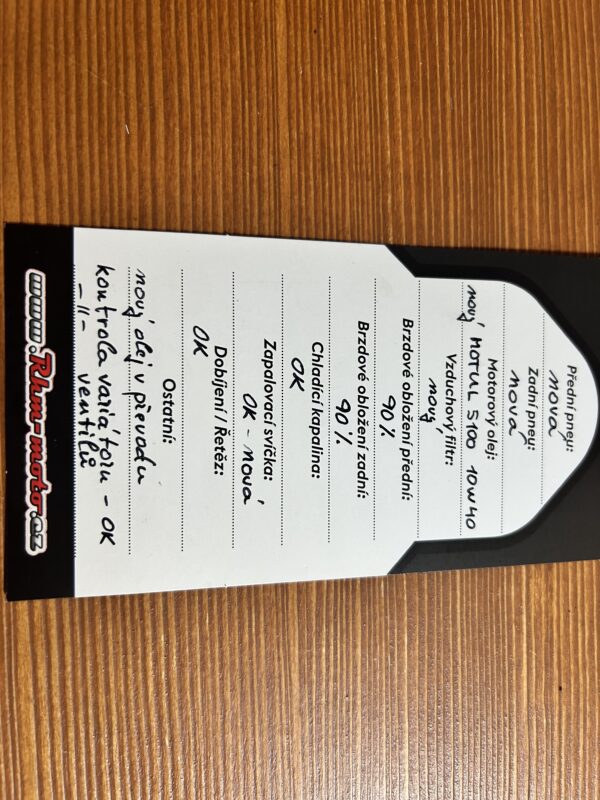 Přední pneu:
nova
Zadní pneu:
nova
Motorový olej:
nový MOTUL 5100 10W40
Vzduchový filtr:
nový
Brzdové obložení přední:
90%
Brzdové obložení zadní:
90%
Chladící kapalina:
OK
Zapalovací svíčka:
OK - nová
Dobíjení / Řetěz:
OK
Ostatní:
nový olej v převodu
kontrola variátoru - OK
-||- ventilů
www.Rhm-moto.cz